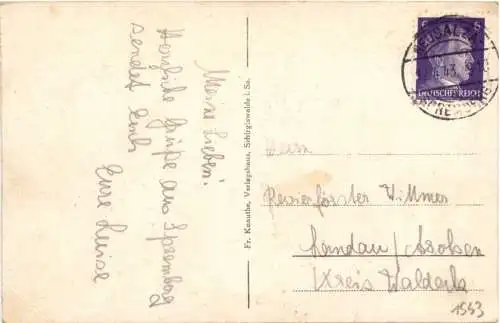 Meine Lieben!
Herzliche Grüße aus Spremberg
sendet Euch
Eure Luise
Fr. Knauthe, Verlagshaus, Schirgiswalde i. Sa.
DEUTSCHES REICH
Herrn
Revierförster Dittmer
Landau/Arolsen
Kreis Waldeck
1553